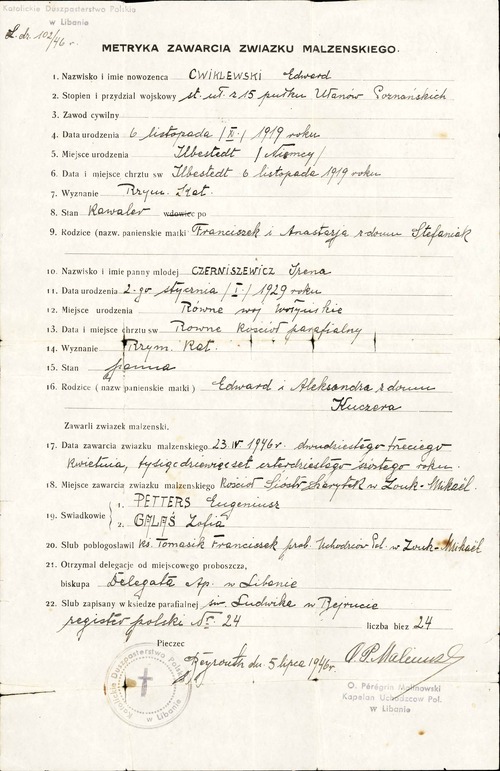 Katolickie Duszpasterstwo Polskie
w Libanie
L. dz. 102/46 r.
METRYKA ZAWARCIA ZWIAZKU MALZENSKIEGO.
1. Nazwisko i imie nowozenca CWIKLEWSKI Edward
2. Stopien i przydzial wojskowy st. uł. z 15 pułku Ułanów Poznańskich
3. Zawod cywilny
4. Data urodzenia 6 listopada /XI./ 1919 roku
5. Miejsce urodzenia Ilbestedt /Niemcy/
6. Data i miejsce chrztu sw Ilbestedt 6 listopada 1919 roku
7. Wyznanie Rzym. Kat.
8. Stan Kawaler wdowiec po
9. Rodzice (nazw. panienskie matki) Franciszek i Anastazja z domu Stefaniak
10. Nazwisko i imie panny mlodej CZERNISZEWICZ Irena
11. Data urodzenia 2-go stycznia /I./ 1929 roku
12. Miejsce urodzenia Równe woj Wołyńskie
13. Data i miejsce chrztu sw Rowne Kościół parafialny
14. Wyznanie Rzym. Kat.
15. Stan panna
16. Rodzice (nazw panienskie matki) Edward i Aleksandra z domu
Kuczera
Zawarli zwiazek malzenski.
17. Data zawarcia zwiazku malzenskiego 23. IV 1946 r. dwudziestego trzeciego
Kwietnia, tysiąc dziewięćset czterdziestego szóstego roku.
18. Miejsce zawarcia zwiazku malzenskiego Kościół Sióstr Szarytek w Zouk-Mikaël
19. Swiadkowie 1. PETTERS Eugeniusz
2. GALAŚ Zofia
20. Slub poblogoslawil Ks. Tomasik Franciszek prob. Uchodźców Pol. w Zouk-Mikaël
21. Otrzymal delegacje od miejscowego proboszcza,
biskupa Delegata Ap. w Libanie
22. Slub zapisany w ksiedze parafialnej św. Ludwika w Bejrucie
register polski № 24 liczba biez 24
Pieczec
Beyrouth dn. 5 lipca 1946 r.
O. P. Malinowski
Katolickie Duszpasterstwo Polskie
w Libanie
O. Pérégrin Malinowski
Kapelan Uchodzcow Pol.
w Libanie